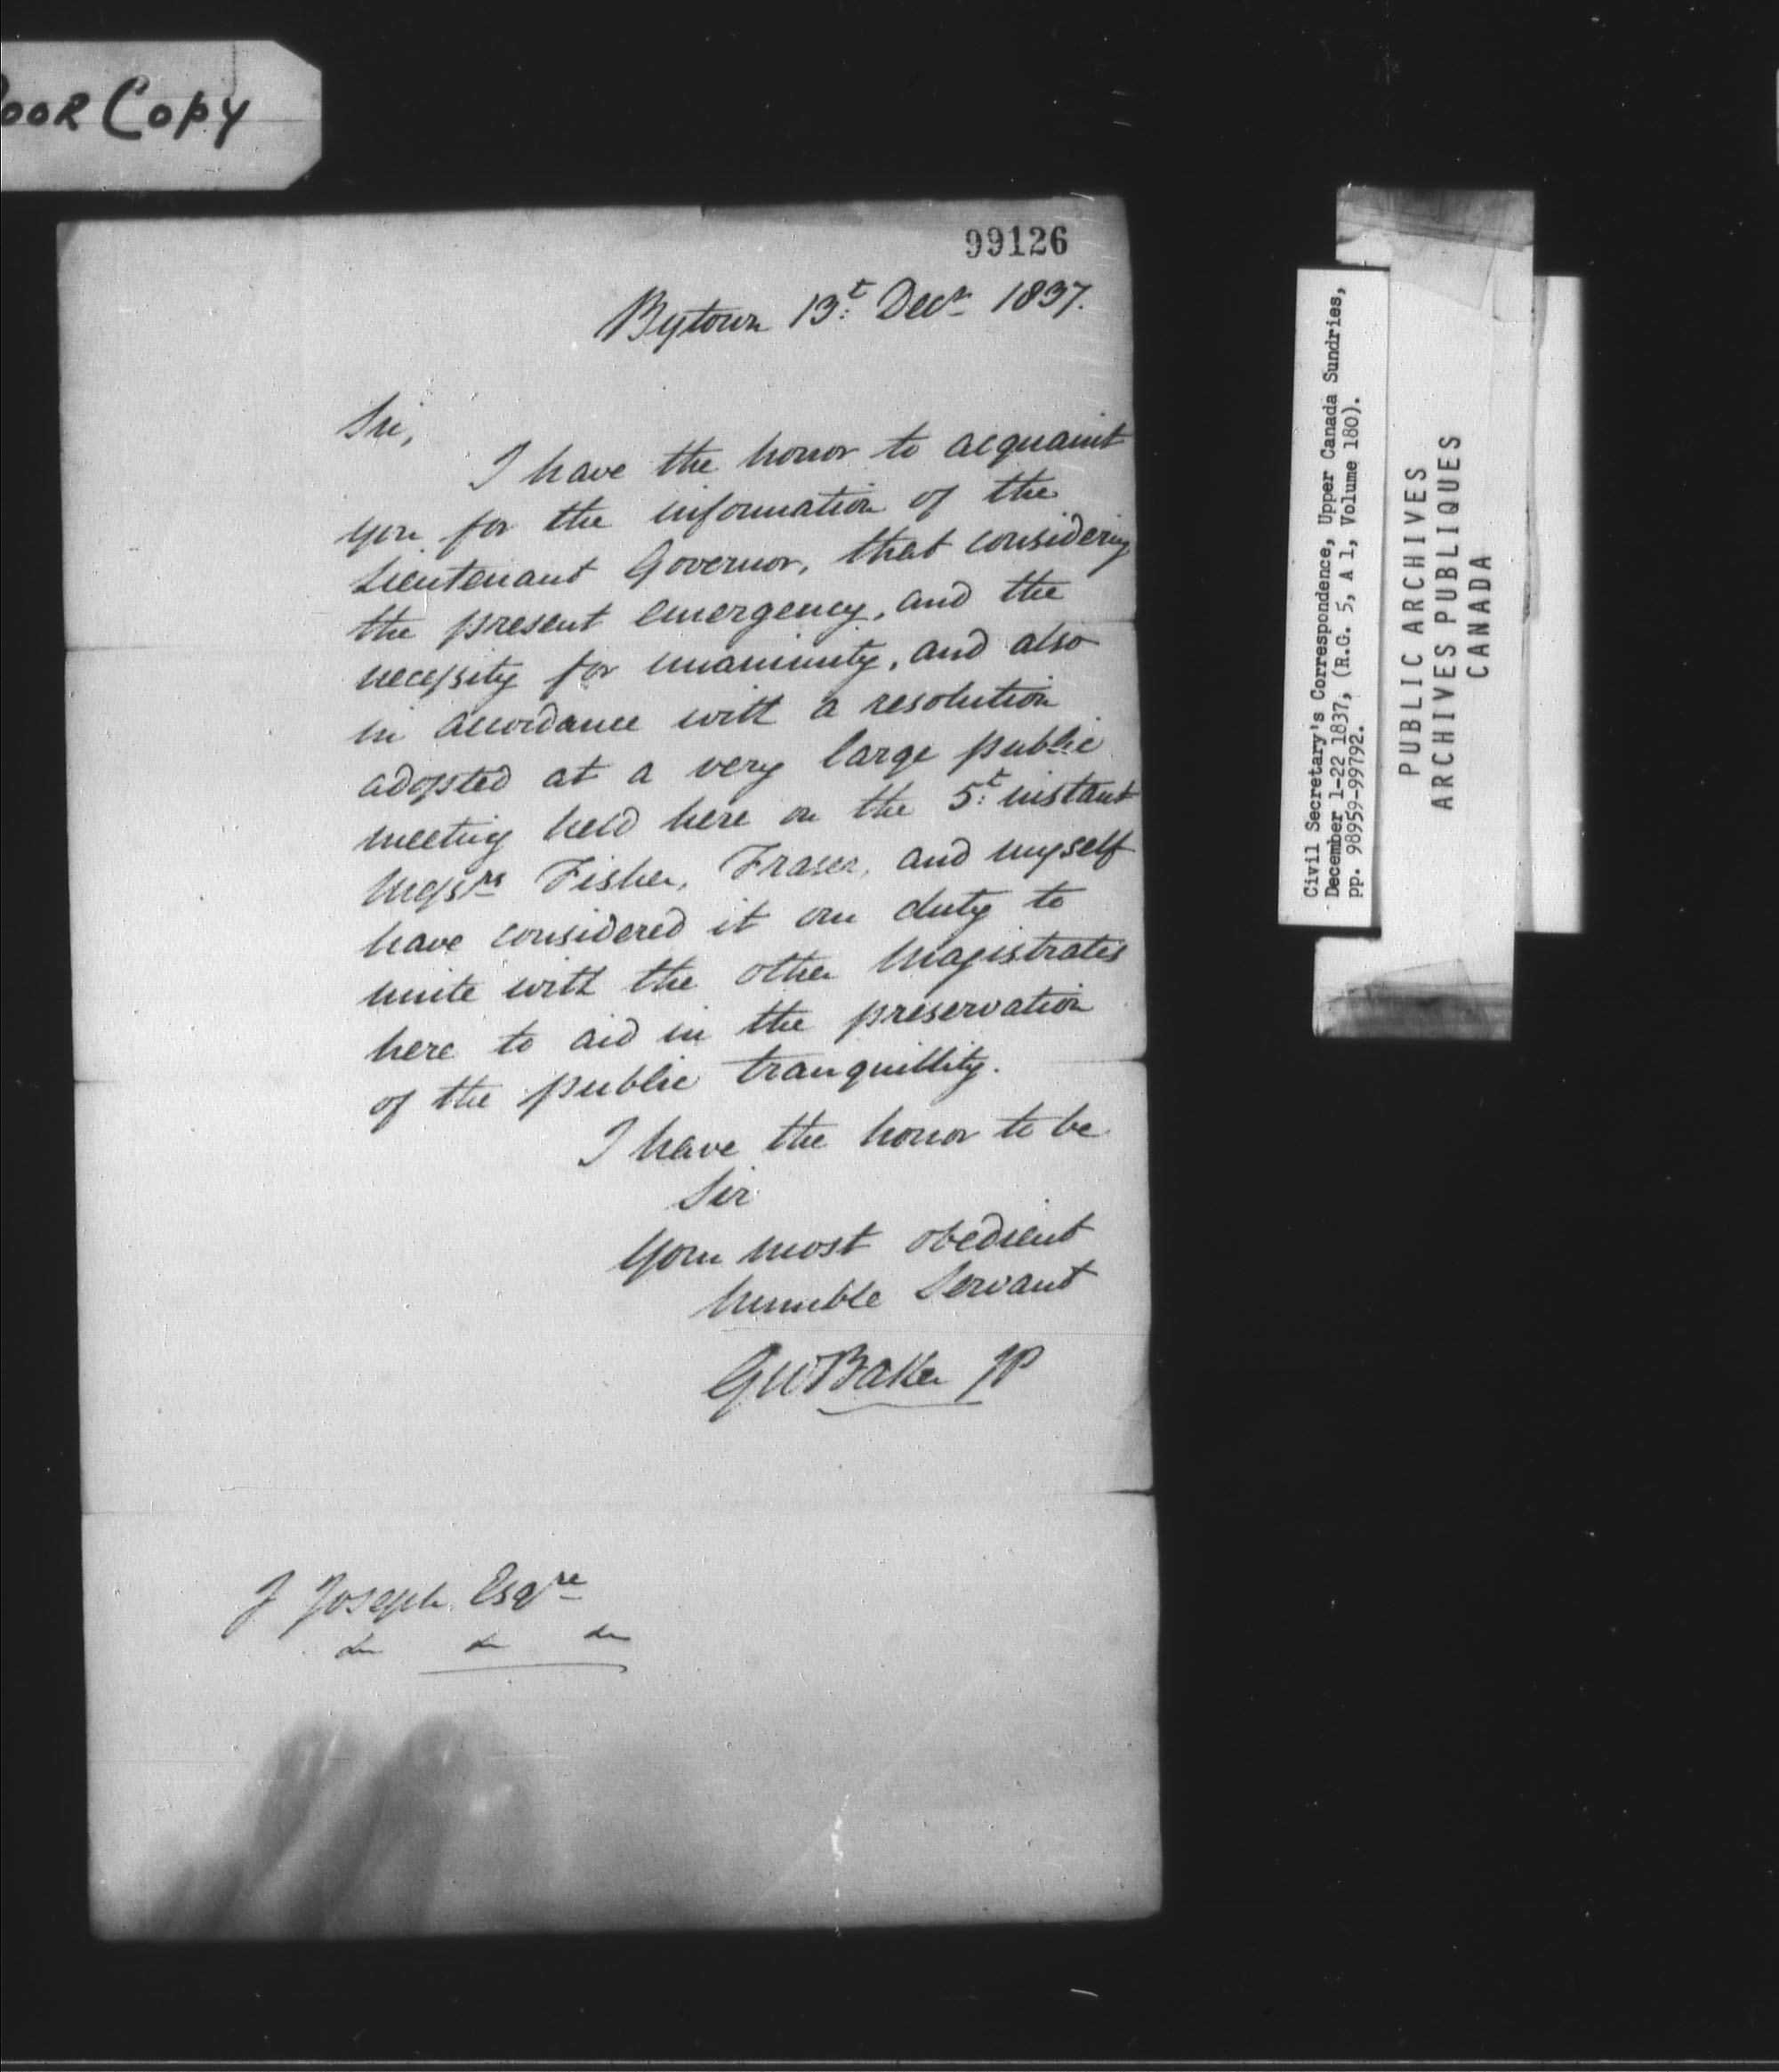 OOR COPY
99126
Bytown 13t. Decr 1837.
Sir,
I have the honor to acquaint
you for the information of the
Lieutenant Governor, that considering
the present emergency, and the
necessity for unanimity, and also
in accordance with a resolution
adopted at a very large public
meeting held here on the 5t. instant
Messrs Fisher, Fraser, and myself
have considered it our duty to
unite with the other Magistrates
here to aid in the preservation
of the public tranquillity.
I have the honor to be
Sir
Your most obedient
humble Servant
GWBaker JP
J Joseph Esqre
Civil Secretary's Correspondence, Upper Canada Sundries,
December 1-22 1837, (R.G. 5, A 1, Volume 180).
pp. 98959-99792.
PUBLIC ARCHIVES
ARCHIVES PUBLIQUES
CANADA